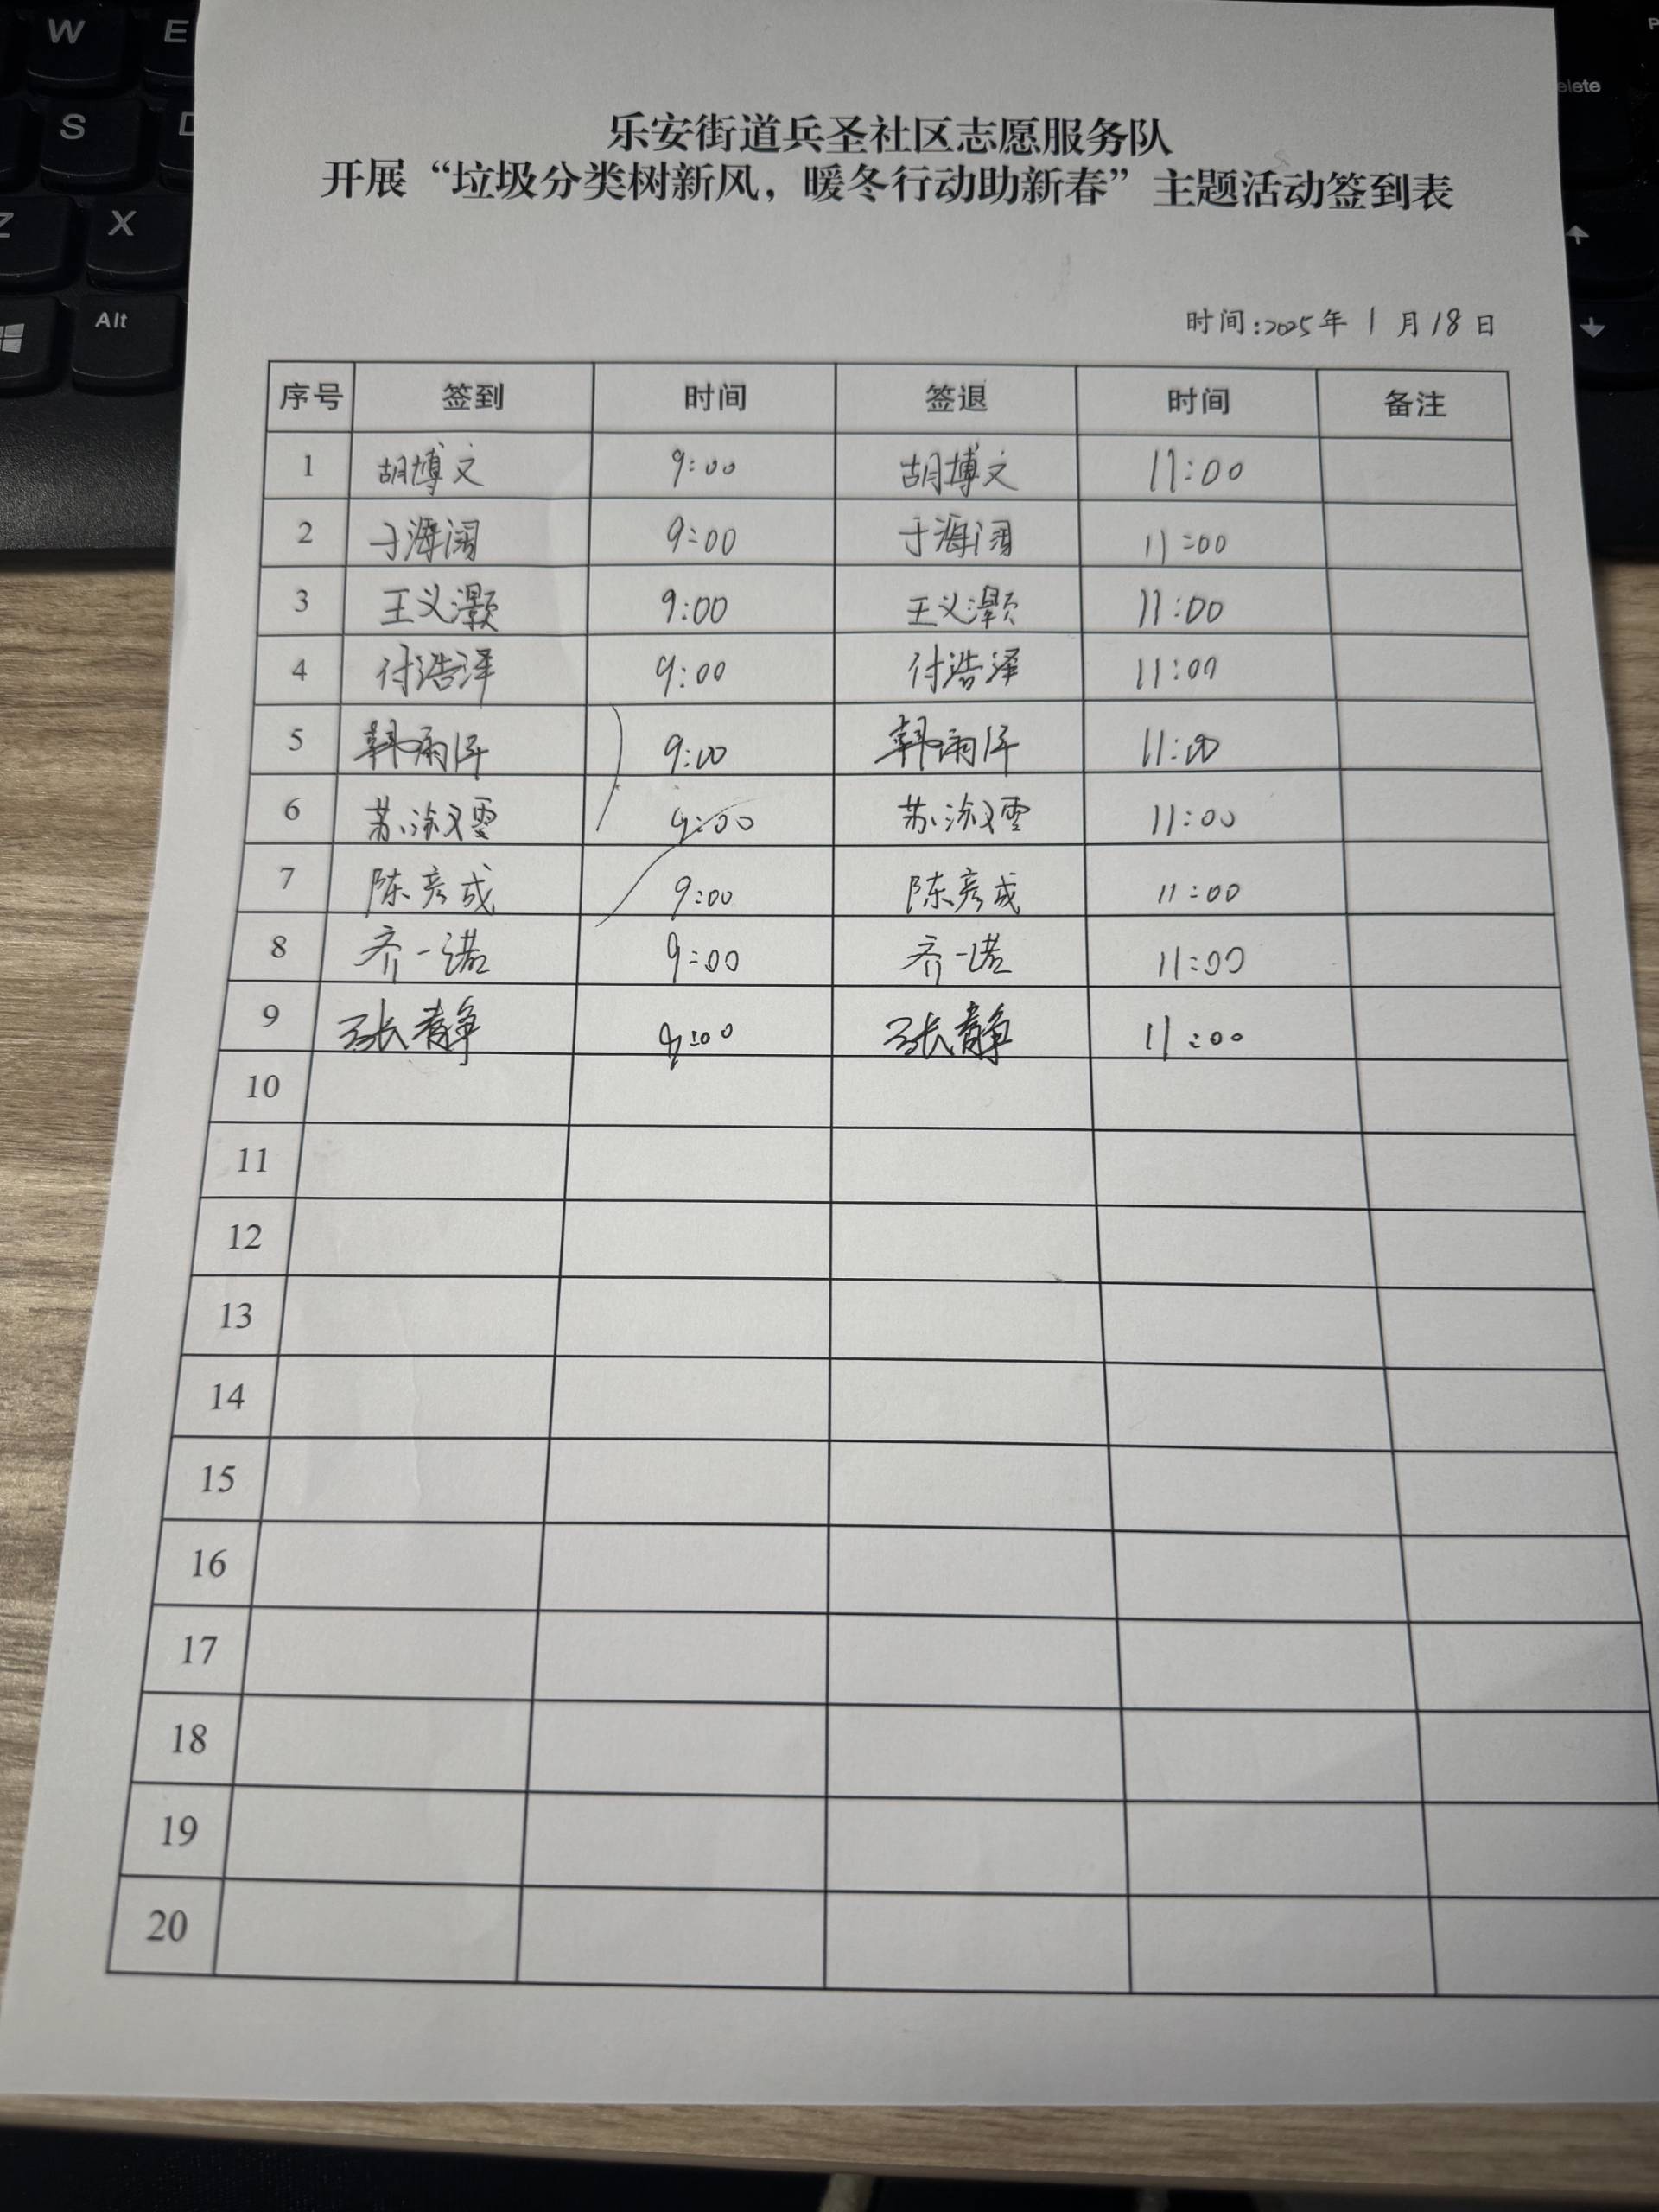 W E
S D
Z X
Alt
elete
乐安街道兵圣社区志愿服务队
开展“垃圾分类树新风，暖冬行动助新春”主题活动签到表
时间:2025年 1 月 18 日
序号 签到 时间 签退 时间 备注
1 胡博文 9:00 胡博文 11:00
2 于海阔 9:00 于海阔 11:00
3 王义灏 9:00 王义灏 11:00
4 付浩泽 9:00 付浩泽 11:00
5 韩雨泽 9:00 韩雨泽 11:00
6 苏 9:00 苏 11:00
7 陈彦成 9:00 陈彦成 11:00
8 齐一诺 9:00 齐一诺 11:00
9 张静 9:00 张静 11:00
10
11
12
13
14
15
16
17
18
19
20